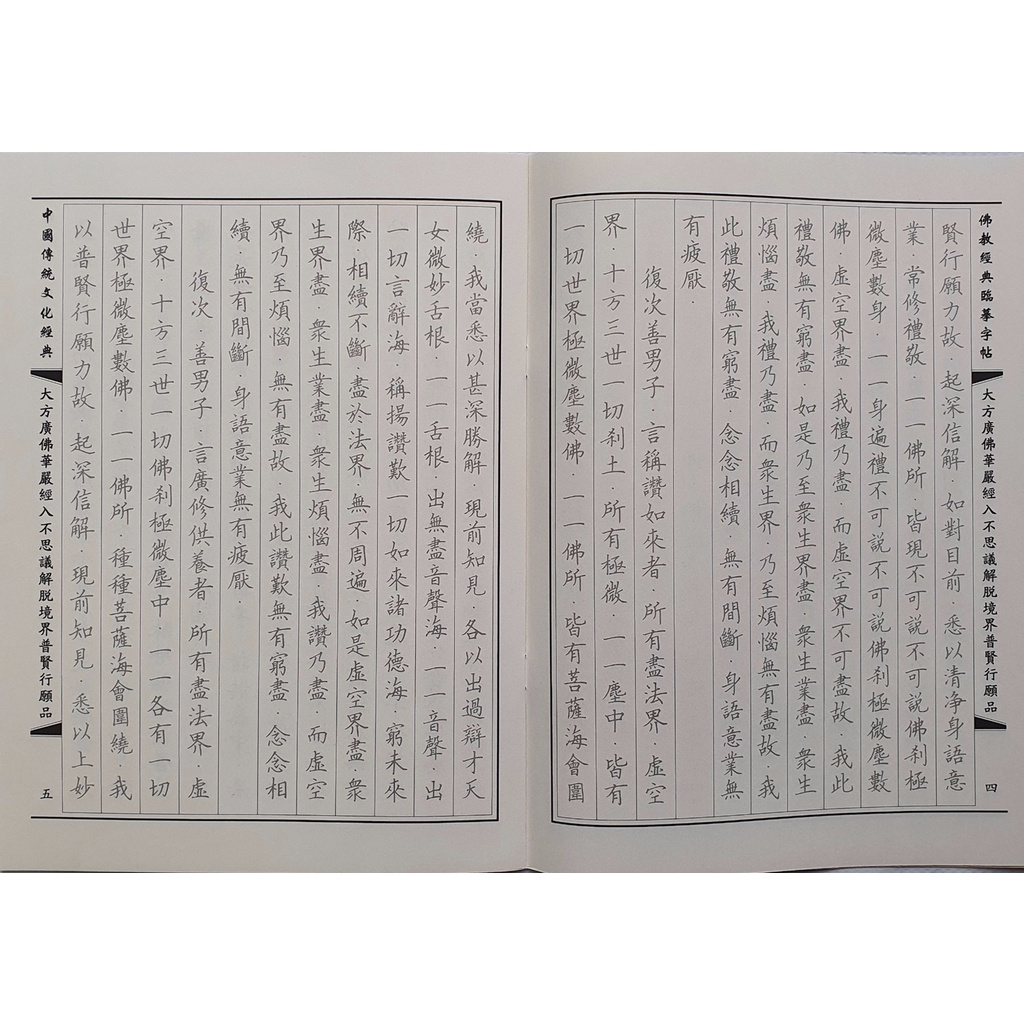 佛教經典臨摹字帖
大方廣佛華嚴經入不思議解脱境界普賢行願品
四
賢行願力故．起深信解．如對目前．悉以清淨身語意
業．常修禮敬．一一佛所．皆現不可説不可説佛刹極
微塵數身．一一身遍禮不可説不可説佛刹極微塵數
佛．虛空界盡．我禮乃盡．而虛空界不可盡故．我此
禮敬無有窮盡．如是乃至衆生界盡．衆生業盡．衆生
煩惱盡．我禮乃盡．而衆生界．乃至煩惱無有盡故．我
此禮敬無有窮盡．念念相續．無有間斷．身語意業無
有疲厭
復次善男子．言稱讚如來者．所有盡法界．虛空
界．十方三世一切刹土．所有極微．一一塵中．皆有
一切世界極微塵數佛．一一佛所．皆有菩薩海會圍
繞．我當悉以甚深勝解．現前知見．各以出過辯才天
女微妙舌根．一一舌根．出無盡音聲海．一一音聲．出
一切言辭海．稱揚讚歎一切如來諸功德海．窮未來
際．相續不斷．盡於法界．無不周遍．如是虛空界盡．衆
生界盡．衆生業盡．衆生煩惱盡．我讚乃盡．而虛空
界乃至煩惱．無有盡故．我此讚歎無有窮盡．念念相
續．無有間斷．身語意業無有疲厭．
復次．善男子．言廣修供養者．所有盡法界．虛
空界．十方三世一切佛刹極微塵中．一一各有一切
世界極微塵數佛．一一佛所．種種菩薩海會圍繞．我
以普賢行願力故．起深信解．現前知見．悉以上妙
中國傳統文化經典
大方廣佛華嚴經入不思議解脱境界普賢行願品
五